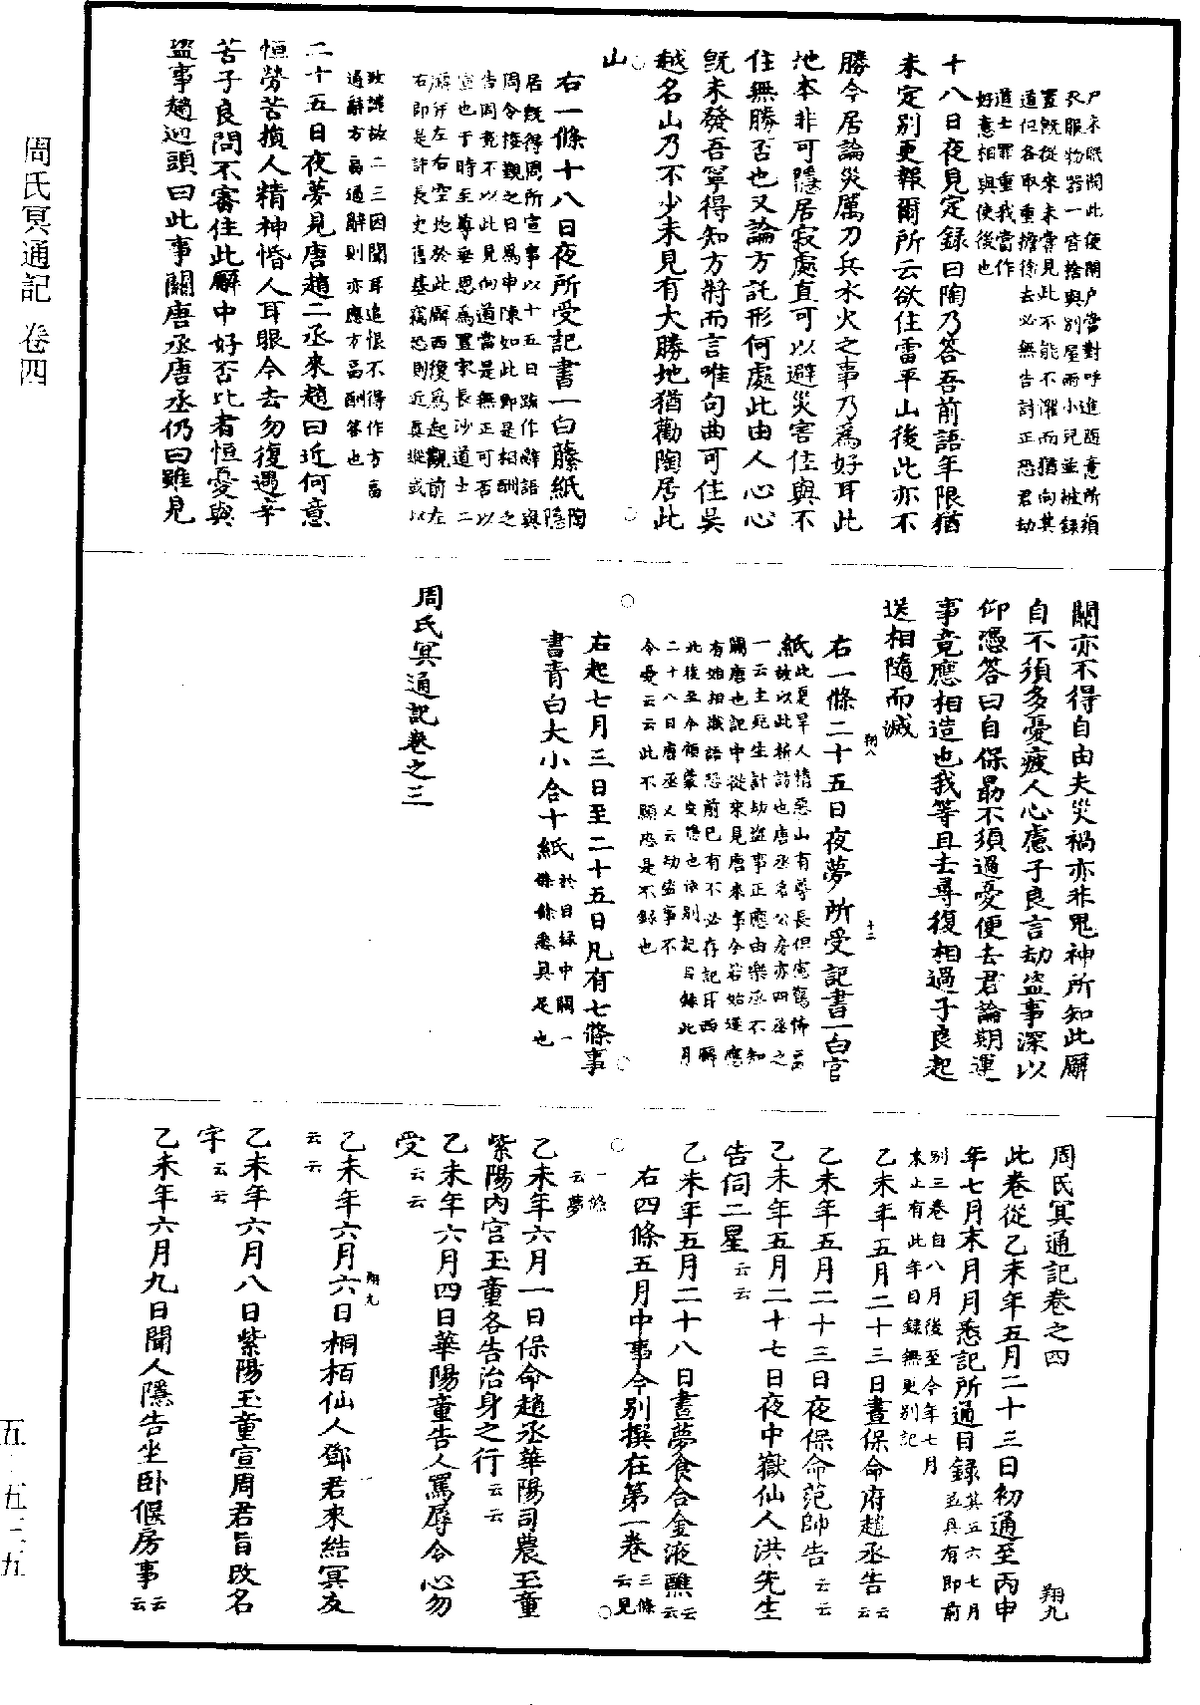 周氏冥通記 卷四
尸未眠聞此便開户當對呼進隨意所須
衣服物器一皆捨與別屋兩小兒並被録
置既從來未嘗見此不能不懼而猶向其
道但各取重擔徐去必無告討正恐君劫
道士罪重我當作
好意相與使後也
十八日夜見定録曰陶乃答吾前語年限猶
未定別更報爾所云欲住雷平山後此亦不
勝今居論災厲刀兵水火之事乃為好耳此
地本非可隱居寂處直可以避災害住與不
住無勝否也又論方託形何處此由人心心
既未發吾寧得知方將而言唯句曲可住吳
越名山乃不少未見有大勝地猶勸陶居此
山
右一條十八日夜所受記書一白藤紙陶隱
居既得周所宣事以十五日䟽作辭語與
周令接觀之日為申陳如此即是相酬之
告周竟不以此見向道當是無正可否以
宣也于時至尊垂思為置家長沙道士二
廨併左右空地於此廨西復為起觀前左
右即是許長史舊基竊恐則近真蹤或以
致譴故二三因聞耳追恨不得作方啚
通辭方啚通辭則亦應方啚酬答也
二十五日夜夢見唐趙二丞來趙曰近何意
恒勞苦損人精神惛人耳眼今去勿復過辛
苦子良問不審住此廨中好否比者恒憂與
盜事趙迴頭曰此事關唐丞唐丞仍曰雖見
關亦不得自由夫災禍亦非鬼神所知此廨
自不須多憂疲人心慮子良言劫盜事深以
仰憑答曰自保勗不須過憂便去君論期運
事竟應相造也我等且去尋復相過子良起
送相隨而滅
翔八
十二
右一條二十五日夜夢所受記書一白官
紙此夏旱人情惡山有尊長但慮驚怖而
故以此斬訪也唐丞名公房亦四丞之
一云主死生計劫盜事正應由樂丞不知
關唐也記中從來見唐來事今若始運應
有始相識語恐前已有不必存記耳西廨
此後至今頓蒙安隱也依別記目録此月
二十八日唐丞又云劫盜事不
令憂云云此不顯恐是不録也
右起七月三日至二十五日凡有七條事
書青白大小合十紙於目録中闕一
條餘悉具足也
周氏冥通記卷之三
周氏冥通記卷之四 翔九
此卷從乙未年五月二十三日初通至丙申
年七月末月月悉記所通目録其五六七月
並具有即前
別三卷自八月後至今年七月
末止有此年目録無更別記
乙未年五月二十三日晝保命府趙丞告云云
乙未年五月二十三日夜保命范帥告云云
乙未年五月二十七日夜中嶽仙人洪先生
告伺二星云云
乙未年五月二十八日晝夢食合金液醮云云
右四條五月中事今別撰在第一卷三條云見
一條云夢
乙未年六月一日保命趙丞華陽司農玉童
紫陽內宮玉童各告治身之行云云
乙未年六月四日華陽童告人罵辱令心勿
受云云
翔九
乙未年六月六日桐栢仙人鄧君來結冥友
云云
乙未年六月八日紫陽玉童宣周君旨改名
字云云
乙未年六月九日聞人隱告坐卧偃房事云云